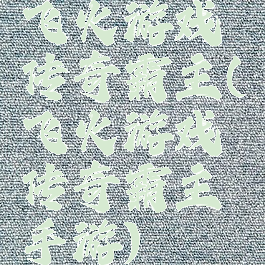 飞火游戏
传奇霸主(
飞火游戏
传奇霸主
手游)